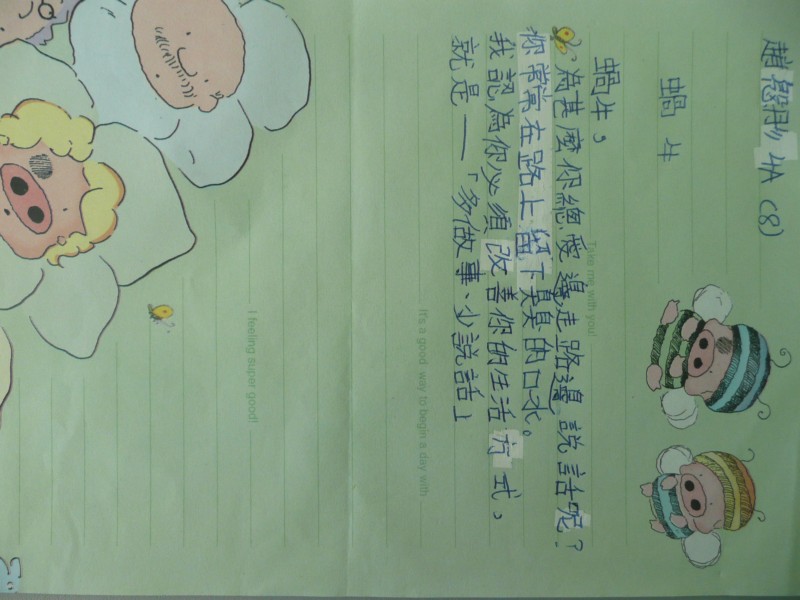 趙 彤 4A (8)
蝸牛
蝸牛，
為甚麼你總愛邊走路邊說話呢？
你常常在路上留下臭臭的口水。
我認為你必須改善你的生活方式，
就是——「多做事、少說話」
Take me with you!
It's a good way to begin a day with
I feeling super good!